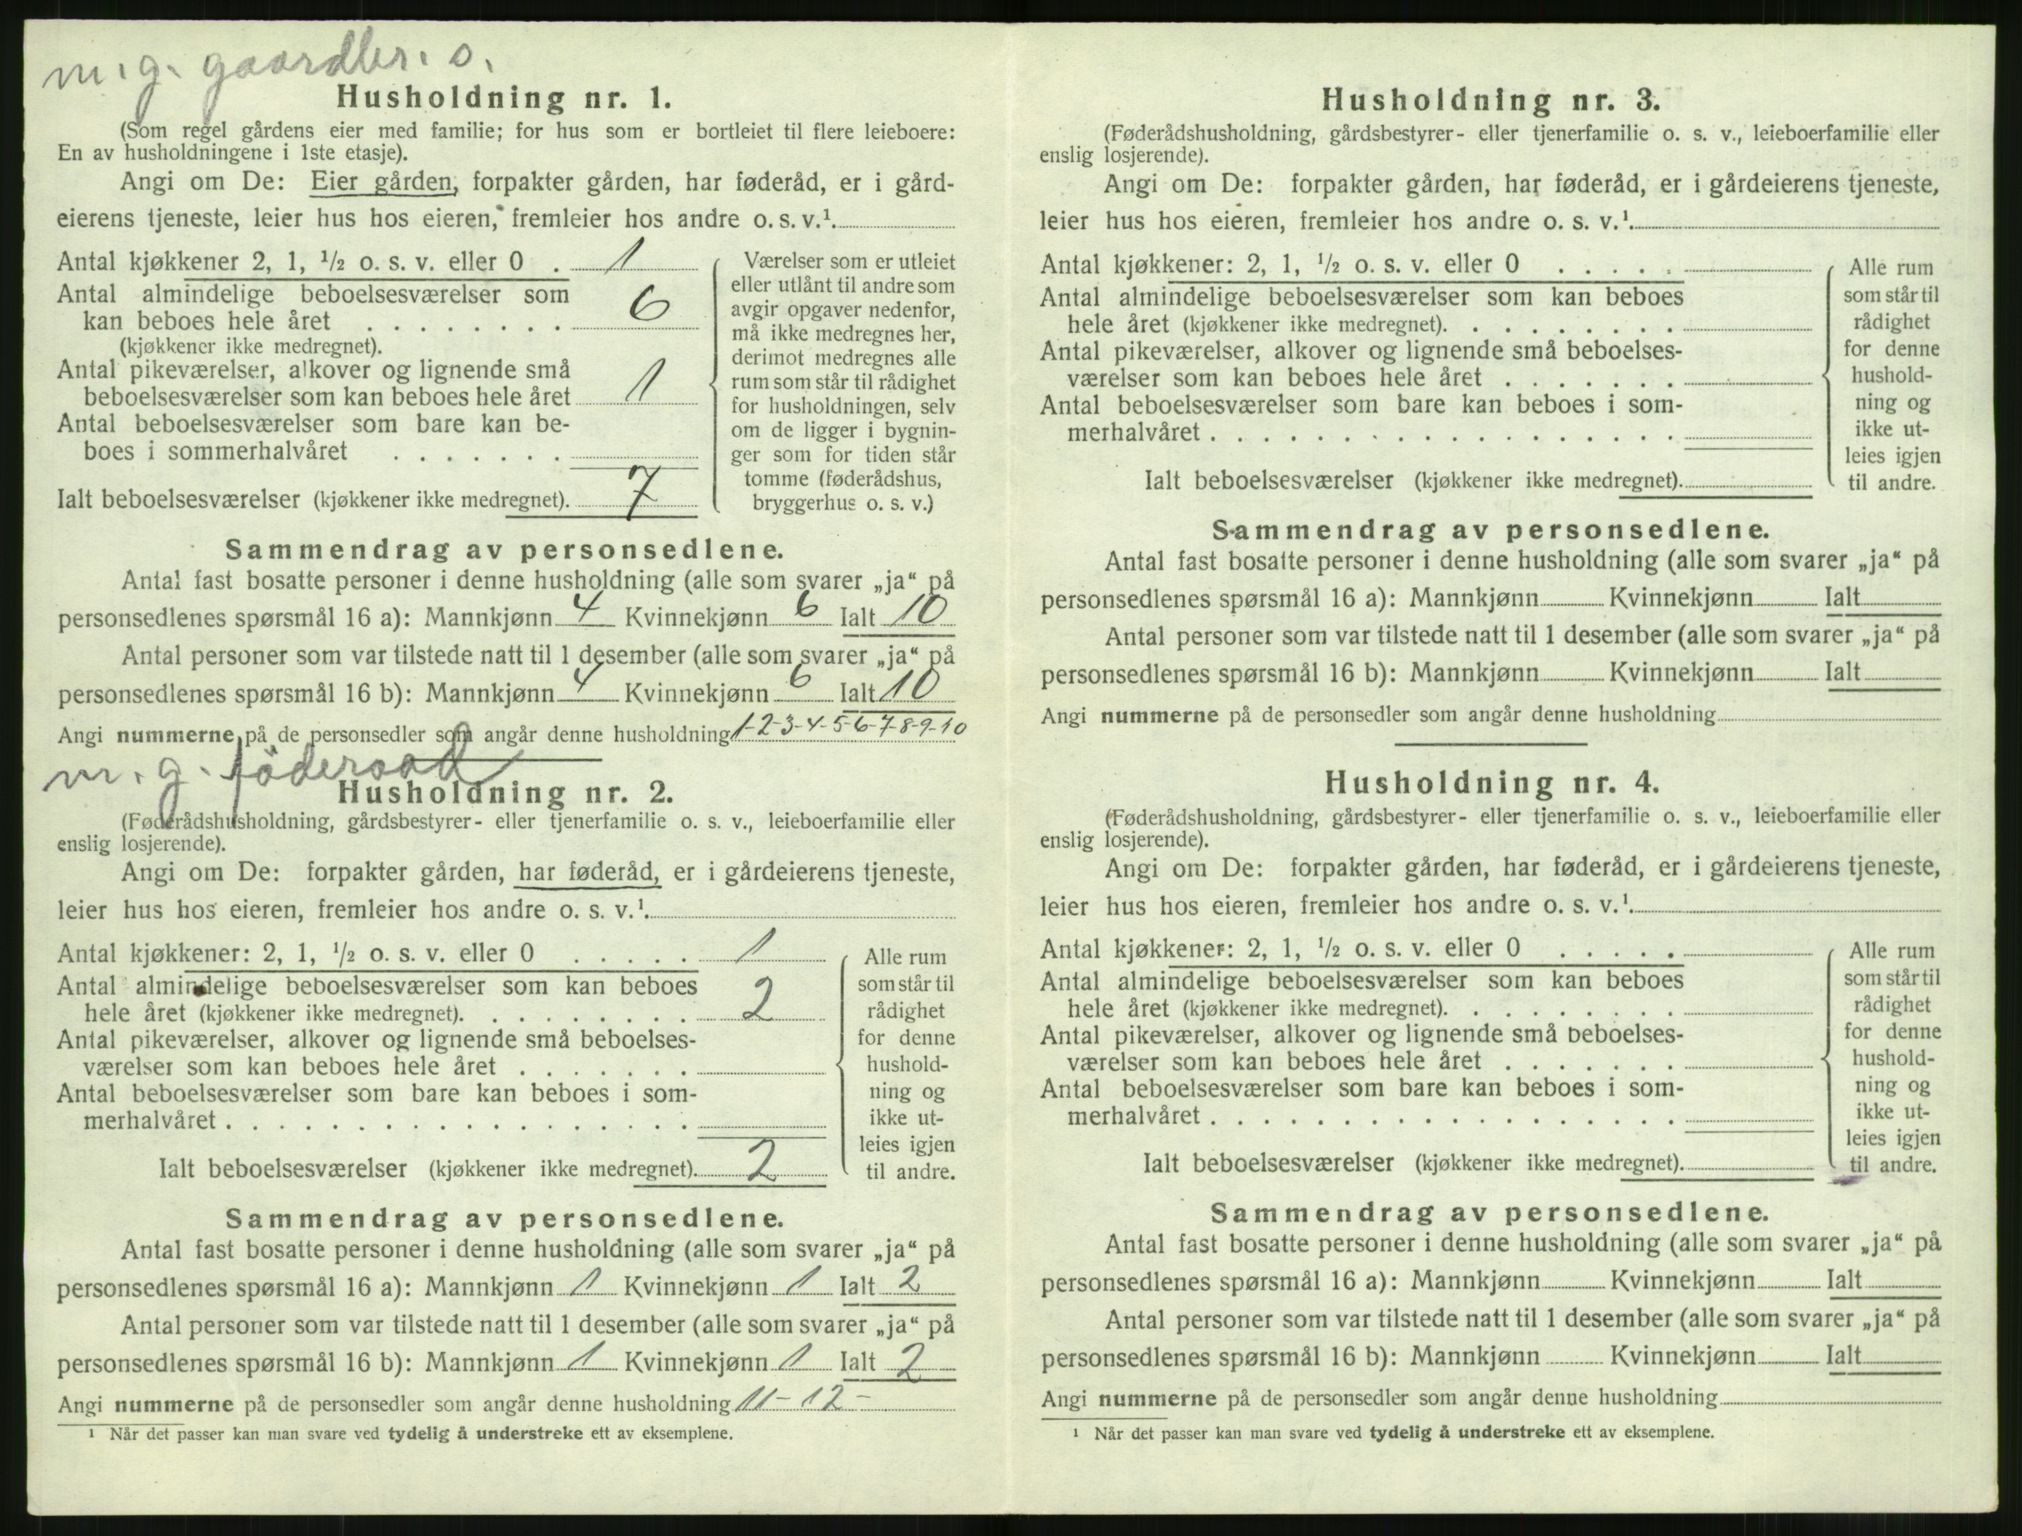 m. g. gaardbr. s.
Husholdning nr. 1.
(Som regel gårdens eier med familie; for hus som er bortleiet til flere leieboere:
En av husholdningene i 1ste etasje).
Angi om De: Eier gården, forpakter gården, har føderåd, er i gård-
eierens tjeneste, leier hus hos eieren, fremleier hos andre o. s. v.¹
Antal kjøkkener 2, 1, ½ o. s. v. eller 0 . 1
Antal almindelige beboelsesværelser som
kan beboes hele året . . . . . . . . 6
(kjøkkener ikke medregnet).
Antal pikeværelser, alkover og lignende små
beboelsesværelser som kan beboes hele året 1
Antal beboelsesværelser som bare kan be-
boes i sommerhalvåret . . . . . . .
Ialt beboelsesværelser (kjøkkener ikke medregnet). 7
Værelser som er utleiet
eller utlånt til andre som
avgir opgaver nedenfor,
må ikke medregnes her,
derimot medregnes alle
rum som står til rådighet
for husholdningen, selv
om de ligger i bygnin-
ger som for tiden står
tomme (føderådshus,
bryggerhus o. s. v.)
Sammendrag av personsedlene.
Antal fast bosatte personer i denne husholdning (alle som svarer „ja“ på
personsedlenes spørsmål 16 a): Mannkjønn 4 Kvinnekjønn 6 Ialt 10
Antal personer som var tilstede natt til 1 desember (alle som svarer „ja“ på
personsedlenes spørsmål 16 b): Mannkjønn 4 Kvinnekjønn 6 Ialt 10
Angi nummerne på de personsedler som angår denne husholdning 1-2-3-4-5-6-7-8-9-10
m. g. föderaad
Husholdning nr. 2.
(Føderådshusholdning, gårdsbestyrer- eller tjenerfamilie o. s. v., leieboerfamilie eller
enslig losjerende).
Angi om De: forpakter gården, har føderåd, er i gårdeierens tjeneste,
leier hus hos eieren, fremleier hos andre o. s. v.¹
Antal kjøkkener: 2, 1, ½ o. s. v. eller 0 . . . . . 1
Antal almindelige beboelsesværelser som kan beboes
hele året (kjøkkener ikke medregnet). . . . . . . . . 2
Antal pikeværelser, alkover og lignende små beboelses-
værelser som kan beboes hele året . . . . . . .
Antal beboelsesværelser som bare kan beboes i som-
merhalvåret . . . . . . . . . . . . . . . . . .
Ialt beboelsesværelser (kjøkkener ikke medregnet). 2
Alle rum
som står til
rådighet
for denne
hushold-
ning og
ikke ut-
leies igjen
til andre.
Sammendrag av personsedlene.
Antal fast bosatte personer i denne husholdning (alle som svarer „ja“ på
personsedlenes spørsmål 16 a): Mannkjønn 1 Kvinnekjønn 1 Ialt 2
Antal personer som var tilstede natt til 1 desember (alle som svarer „ja“ på
personsedlenes spørsmål 16 b): Mannkjønn 1 Kvinnekjønn 1 Ialt 2
Angi nummerne på de personsedler som angår denne husholdning 11-12-
¹ Når det passer kan man svare ved tydelig å understreke ett av eksemplene.
Husholdning nr. 3.
(Føderådshusholdning, gårdsbestyrer- eller tjenerfamilie o. s. v., leieboerfamilie eller
enslig losjerende).
Angi om De: forpakter gården, har føderåd, er i gårdeierens tjeneste,
leier hus hos eieren, fremleier hos andre o. s. v.¹
Antal kjøkkener: 2, 1, ½ o. s. v. eller 0 . . . . .
Antal almindelige beboelsesværelser som kan beboes
hele året (kjøkkener ikke medregnet). . . . . . . . .
Antal pikeværelser, alkover og lignende små beboelses-
værelser som kan beboes hele året . . . . . . .
Antal beboelsesværelser som bare kan beboes i som-
merhalvåret . . . . . . . . . . . . . . . . . .
Ialt beboelsesværelser (kjøkkener ikke medregnet).
Alle rum
som står til
rådighet
for denne
hushold-
ning og
ikke ut-
leies igjen
til andre.
Sammendrag av personsedlene.
Antal fast bosatte personer i denne husholdning (alle som svarer „ja“ på
personsedlenes spørsmål 16 a): Mannkjønn Kvinnekjønn Ialt
Antal personer som var tilstede natt til 1 desember (alle som svarer „ja“ på
personsedlenes spørsmål 16 b): Mannkjønn Kvinnekjønn Ialt
Angi nummerne på de personsedler som angår denne husholdning
Husholdning nr. 4.
(Føderådshusholdning, gårdsbestyrer- eller tjenerfamilie o. s. v., leieboerfamilie eller
enslig losjerende).
Angi om De: forpakter gården, har føderåd, er i gårdeierens tjeneste,
leier hus hos eieren, fremleier hos andre o. s. v.¹
Antal kjøkkener: 2, 1, ½ o. s. v. eller 0 . . . . .
Antal almindelige beboelsesværelser som kan beboes
hele året (kjøkkener ikke medregnet). . . . . . . . .
Antal pikeværelser, alkover og lignende små beboelses-
værelser som kan beboes hele året . . . . . . .
Antal beboelsesværelser som bare kan beboes i som-
merhalvåret . . . . . . . . . . . . . . . . . .
Ialt beboelsesværelser (kjøkkener ikke medregnet).
Alle rum
som står til
rådighet
for denne
hushold-
ning og
ikke ut-
leies igjen
til andre.
Sammendrag av personsedlene.
Antal fast bosatte personer i denne husholdning (alle som svarer „ja“ på
personsedlenes spørsmål 16 a): Mannkjønn Kvinnekjønn Ialt
Antal personer som var tilstede natt til 1 desember (alle som svarer „ja“ på
personsedlenes spørsmål 16 b): Mannkjønn Kvinnekjønn Ialt
Angi nummerne på de personsedler som angår denne husholdning
¹ Når det passer kan man svare ved tydelig å understreke ett av eksemplene.